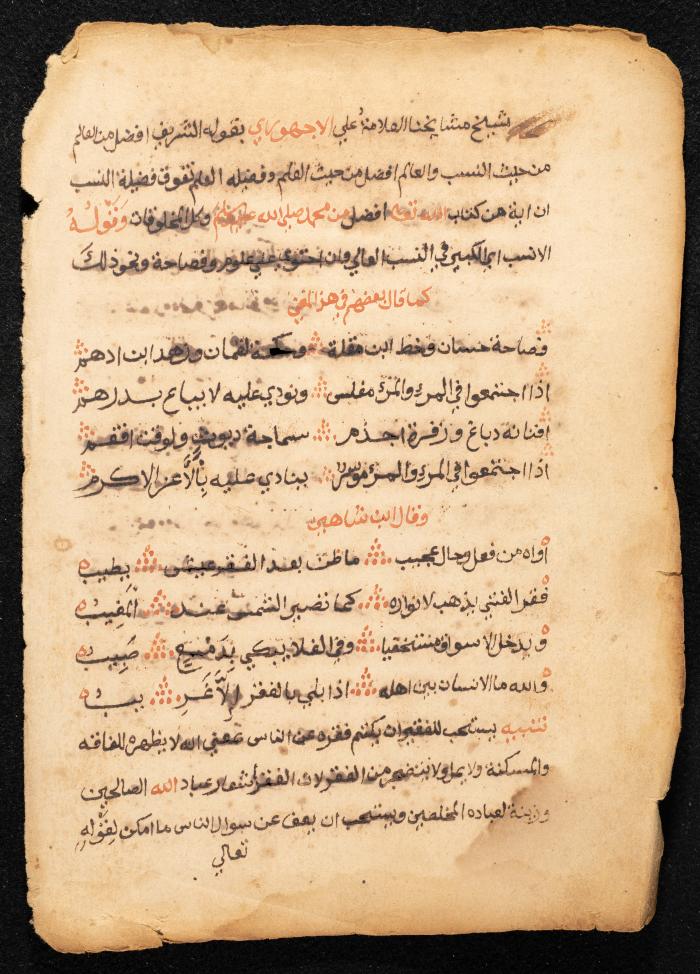 بشيخ مشايخنا العلامة علي الاجهوري بقوله الشريف افضل من العالم
من حيث النسب والعالم افضل من حيث العلم وفضيلة العلم تفوق فضيلة النسب
ان اية من كتاب الله تعالى افضل من محمد صلى الله عليه وسلم وكل المخلوقات وقوله
الانسب اي الكبير في النسب العالي وان احتوى على علوم وفصاحة ونحو ذلك
كما قال بعضهم في هذا المعنى
فصاحة حسان وخط ابن مقلة وحكمة لقمان وزهد ابن ادهم
اذا اجتمعوا في المرء والمرء مفلس ونودي عليه لا يباع بدرهم
دباغ وزفرة اجذم سماجة ديوث
اذا اجتمعوا في المرء والمرء موسر ينادى عليه بالاعز الاكرم
وقال ابن شاهين
اواه من فعل وحال عجيب ما ظن بعد الفقر عيش يطيب
فقر الفتى يذهب لانواره كما تضير الشمس عند المغيب
ويدخل الاسواق مستخفيا وفي الفلا يبكي بدمع صبيب
والله ما الانسان بين اهله اذا بلي بالفقر الا غريب
تنبيه يستحب للفقير ان يكتم فقره عن الناس بمعنى انه لا يظهر للفاقه
والمسكنة ولا يمل ولا يتضجر من الفقر لان الفقر شعار عباد الله الصالحين
وزينة لعباده المخلصين ويستحب ان يعف عن سوال الناس ما امكن لقوله
تعالى